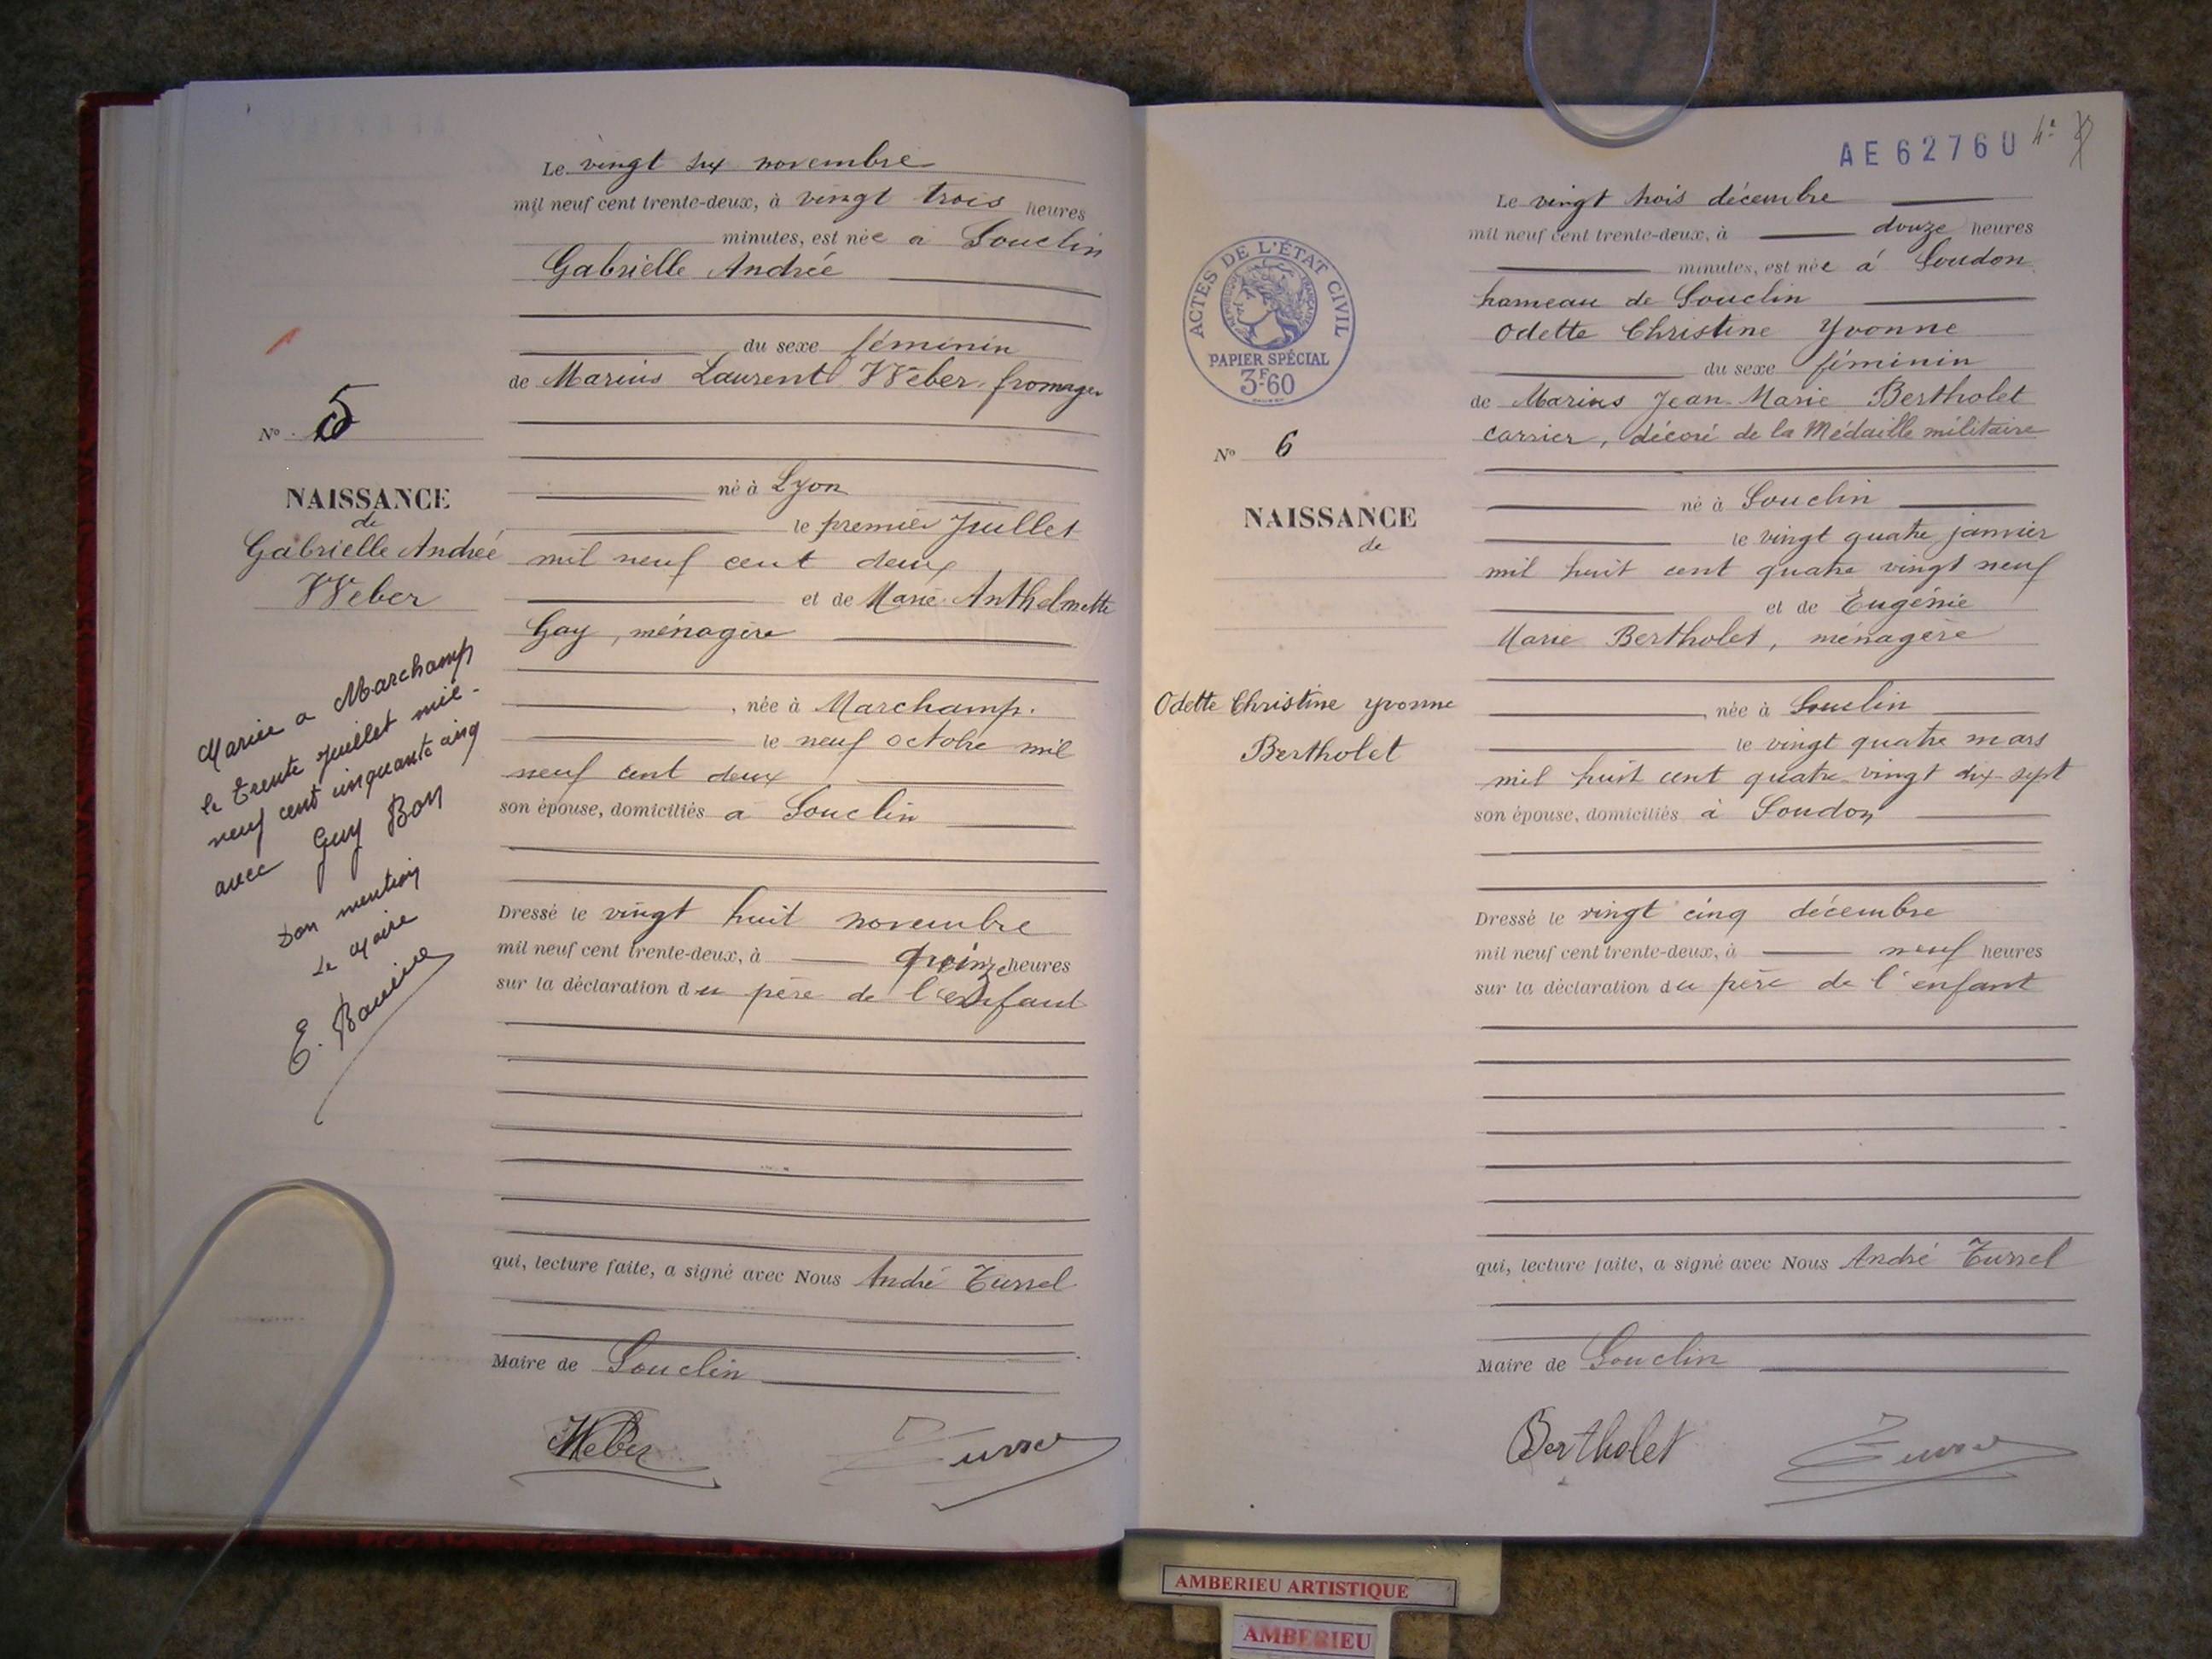 Le vingt six novembre
mil neuf cent trente-deux, à vingt trois heures
minutes, est née à Souclin
Gabrielle Andrée
du sexe féminin
de Marius Laurent Weber, fromager
N° 5
né à Lyon
NAISSANCE
de
Gabrielle Andrée
Weber
le premier Juillet
mil neuf cent deux
et de Marie Anthelmette
Gay, ménagère
née à Marchamp.
le neuf octobre mil
neuf cent deux
son épouse, domiciliés à Souclin
Mariée a Marchamp
le trente juillet mil-
neuf cent cinquante cinq
avec Guy Bon
Don mention
Le Maire
Dressé le vingt huit novembre
mil neuf cent trente-deux, à quinze heures
sur la déclaration du père de l'enfant
qui, lecture faite, a signé avec Nous André Turrel
Maire de Souclin
Weber
Turrel
AE 62760
Le vingt trois décembre
mil neuf cent trente-deux, à douze heures
minutes, est née à Soudon
hameau de Souclin
Odette Christine Yvonne
du sexe féminin
de Marius Jean-Marie Bertholet
carrier, décoré de la Médaille militaire
ACTES DE L'ÉTAT CIVIL
RÉPUBLIQUE FRANÇAISE
PAPIER SPÉCIAL
3F60
N° 6
NAISSANCE
de
Odette Christine Yvonne
Bertholet
né à Souclin
le vingt quatre janvier
mil huit cent quatre vingt neuf
et de Eugénie
Marie Bertholet, ménagère
née à Souclin
le vingt quatre mars
mil huit cent quatre vingt dix-sept
son épouse, domiciliés à Soudon
Dressé le vingt cinq décembre
mil neuf cent trente-deux, à neuf heures
sur la déclaration du père de l'enfant
qui, lecture faite, a signé avec Nous André Turrel
Maire de Souclin
Bertholet
Turrel
AMBERIEU ARTISTIQUE
AMBERIEU